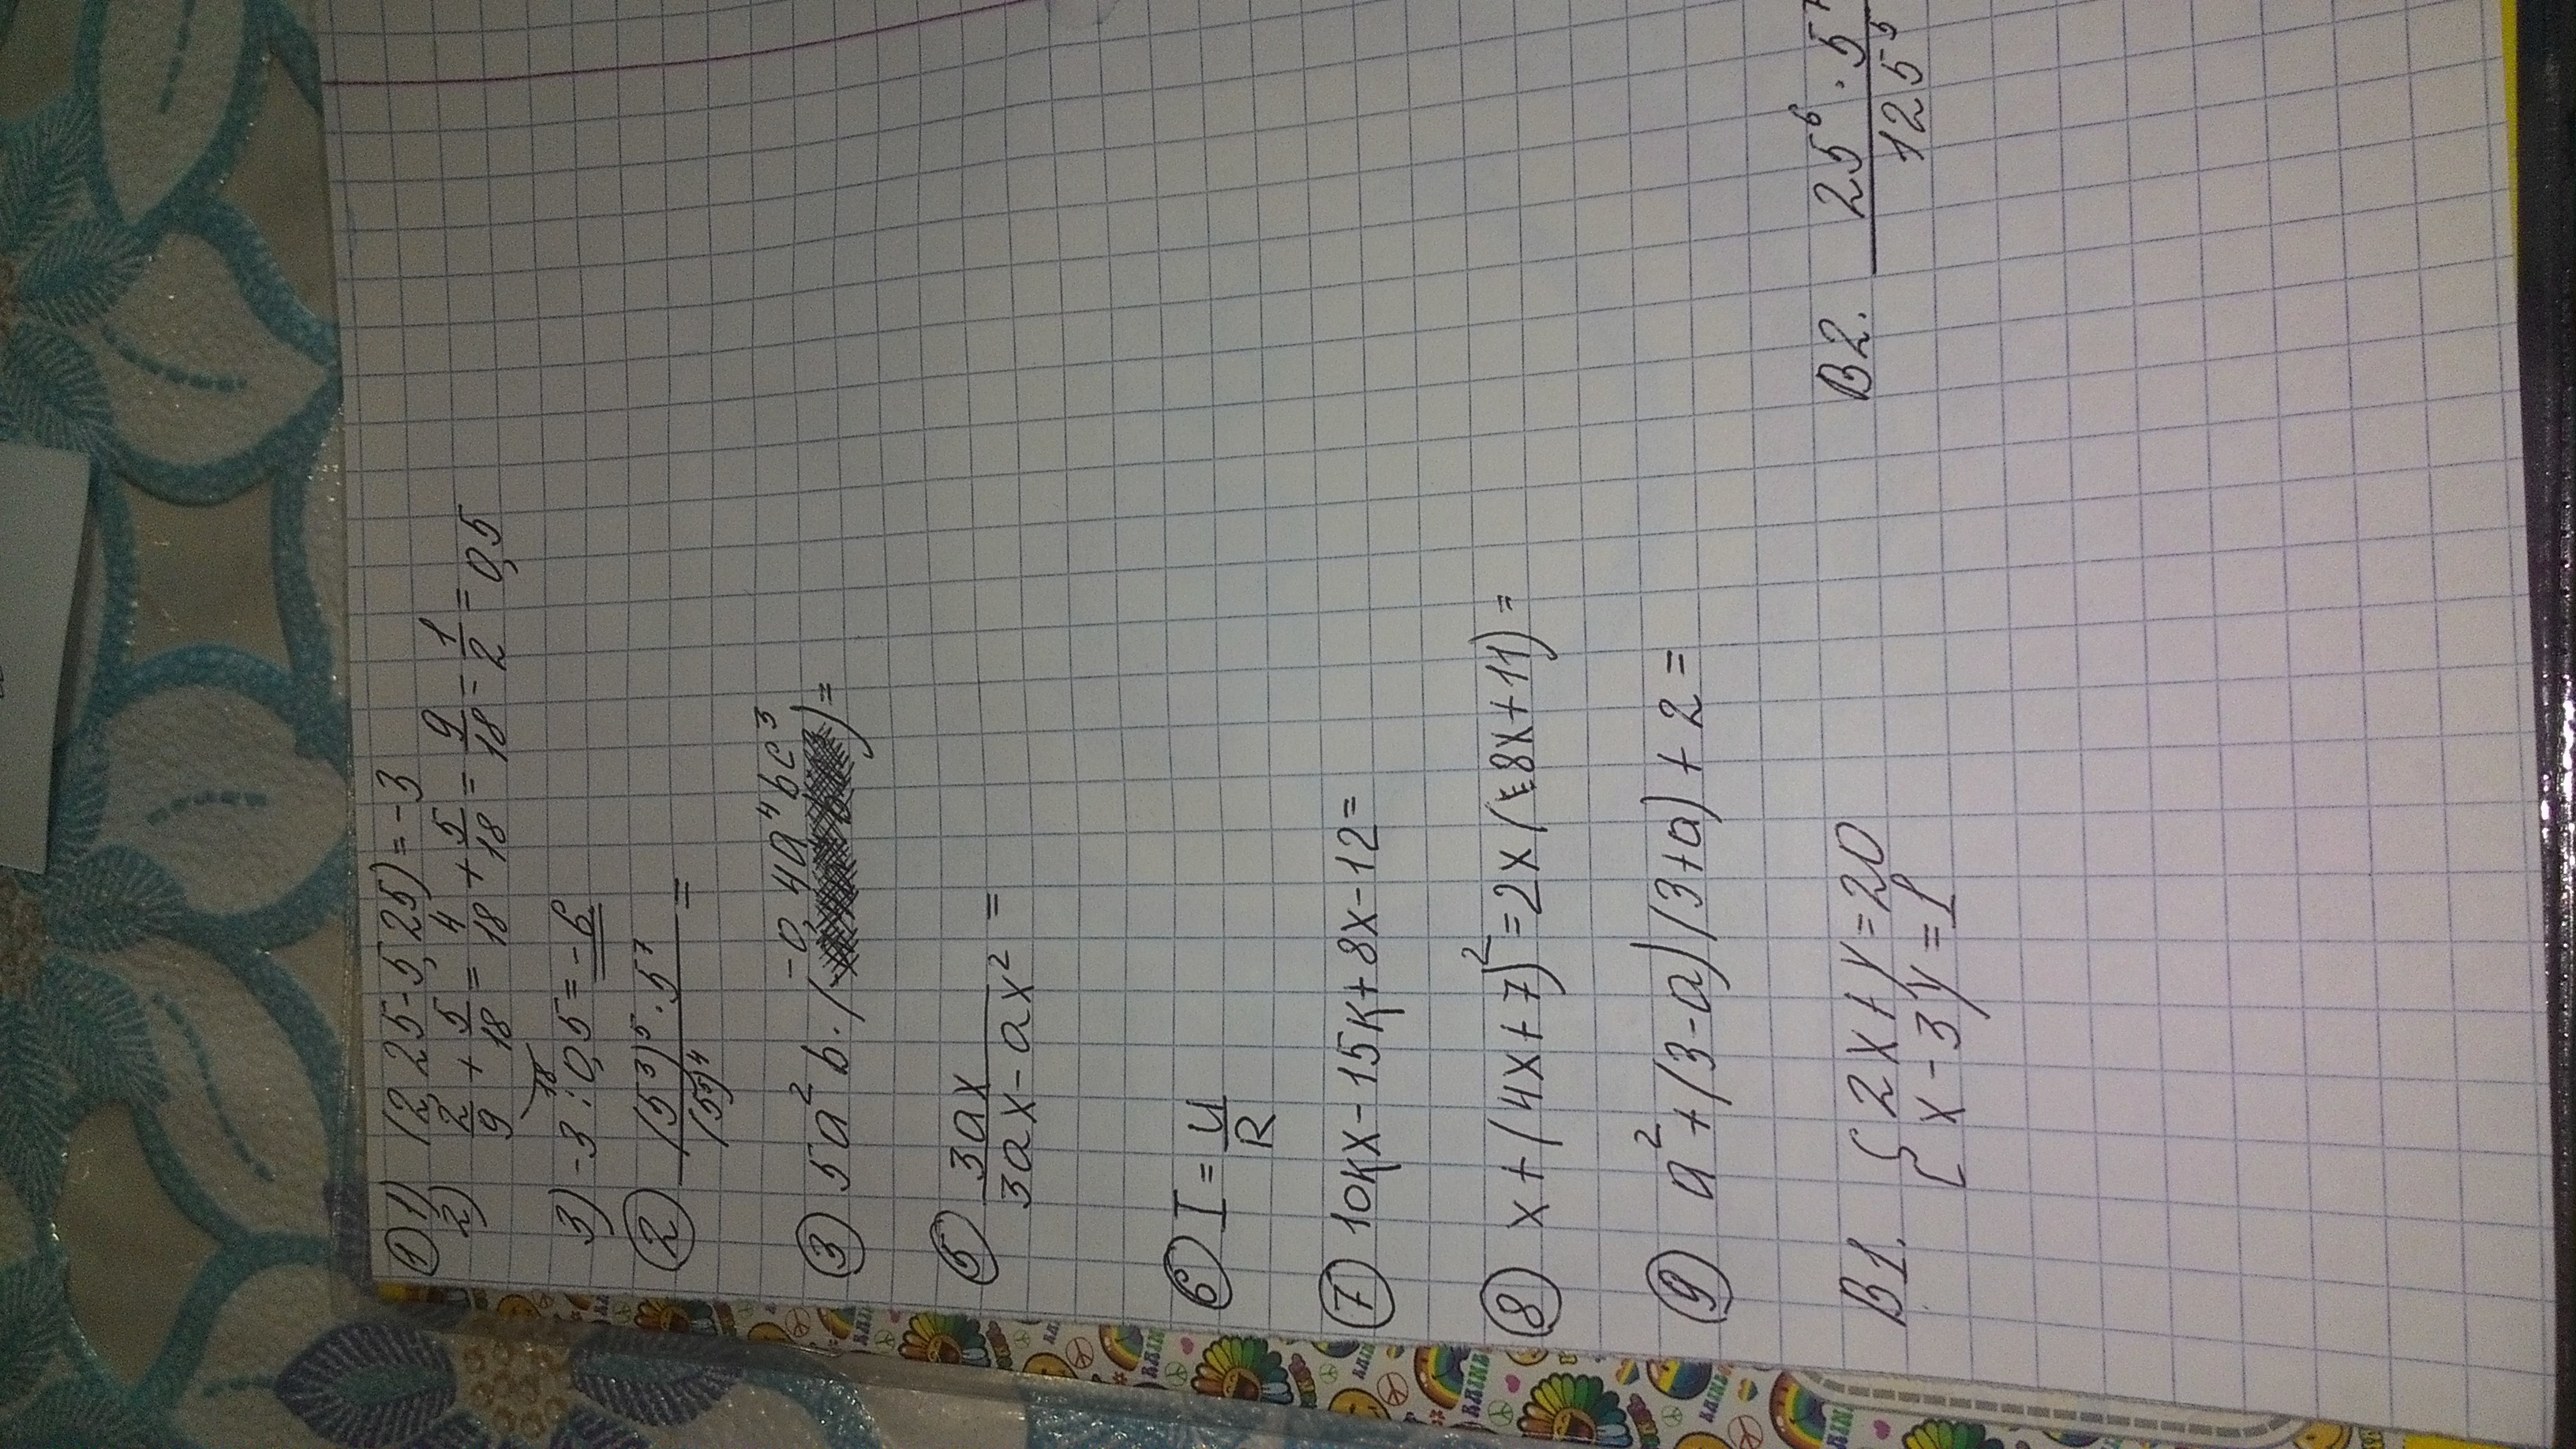 ① 1) (2,25-5,25)=-3
2) 2/9 + 5/18 = 4/18 + 5/18 = 9/18 = 1/2 = 0,5
18
3) -3 : 0,5 = -6
② (5³)⁵ · 5⁷ / (55)⁴ =
③ 5a²b · (-0,4a⁴bc³) =
⑤ 3ax / 3ax - ax² =
⑥ I = U/R
⑦ 10kx-15k+8x-12=
⑧ x+(4x+7)²=2x(8x+11)=
⑨ a²+(3-a)(3+a)+2=
B1. { 2x+y=20
x-3y=1
B2. 25⁶ · 5⁷ / 125⁵